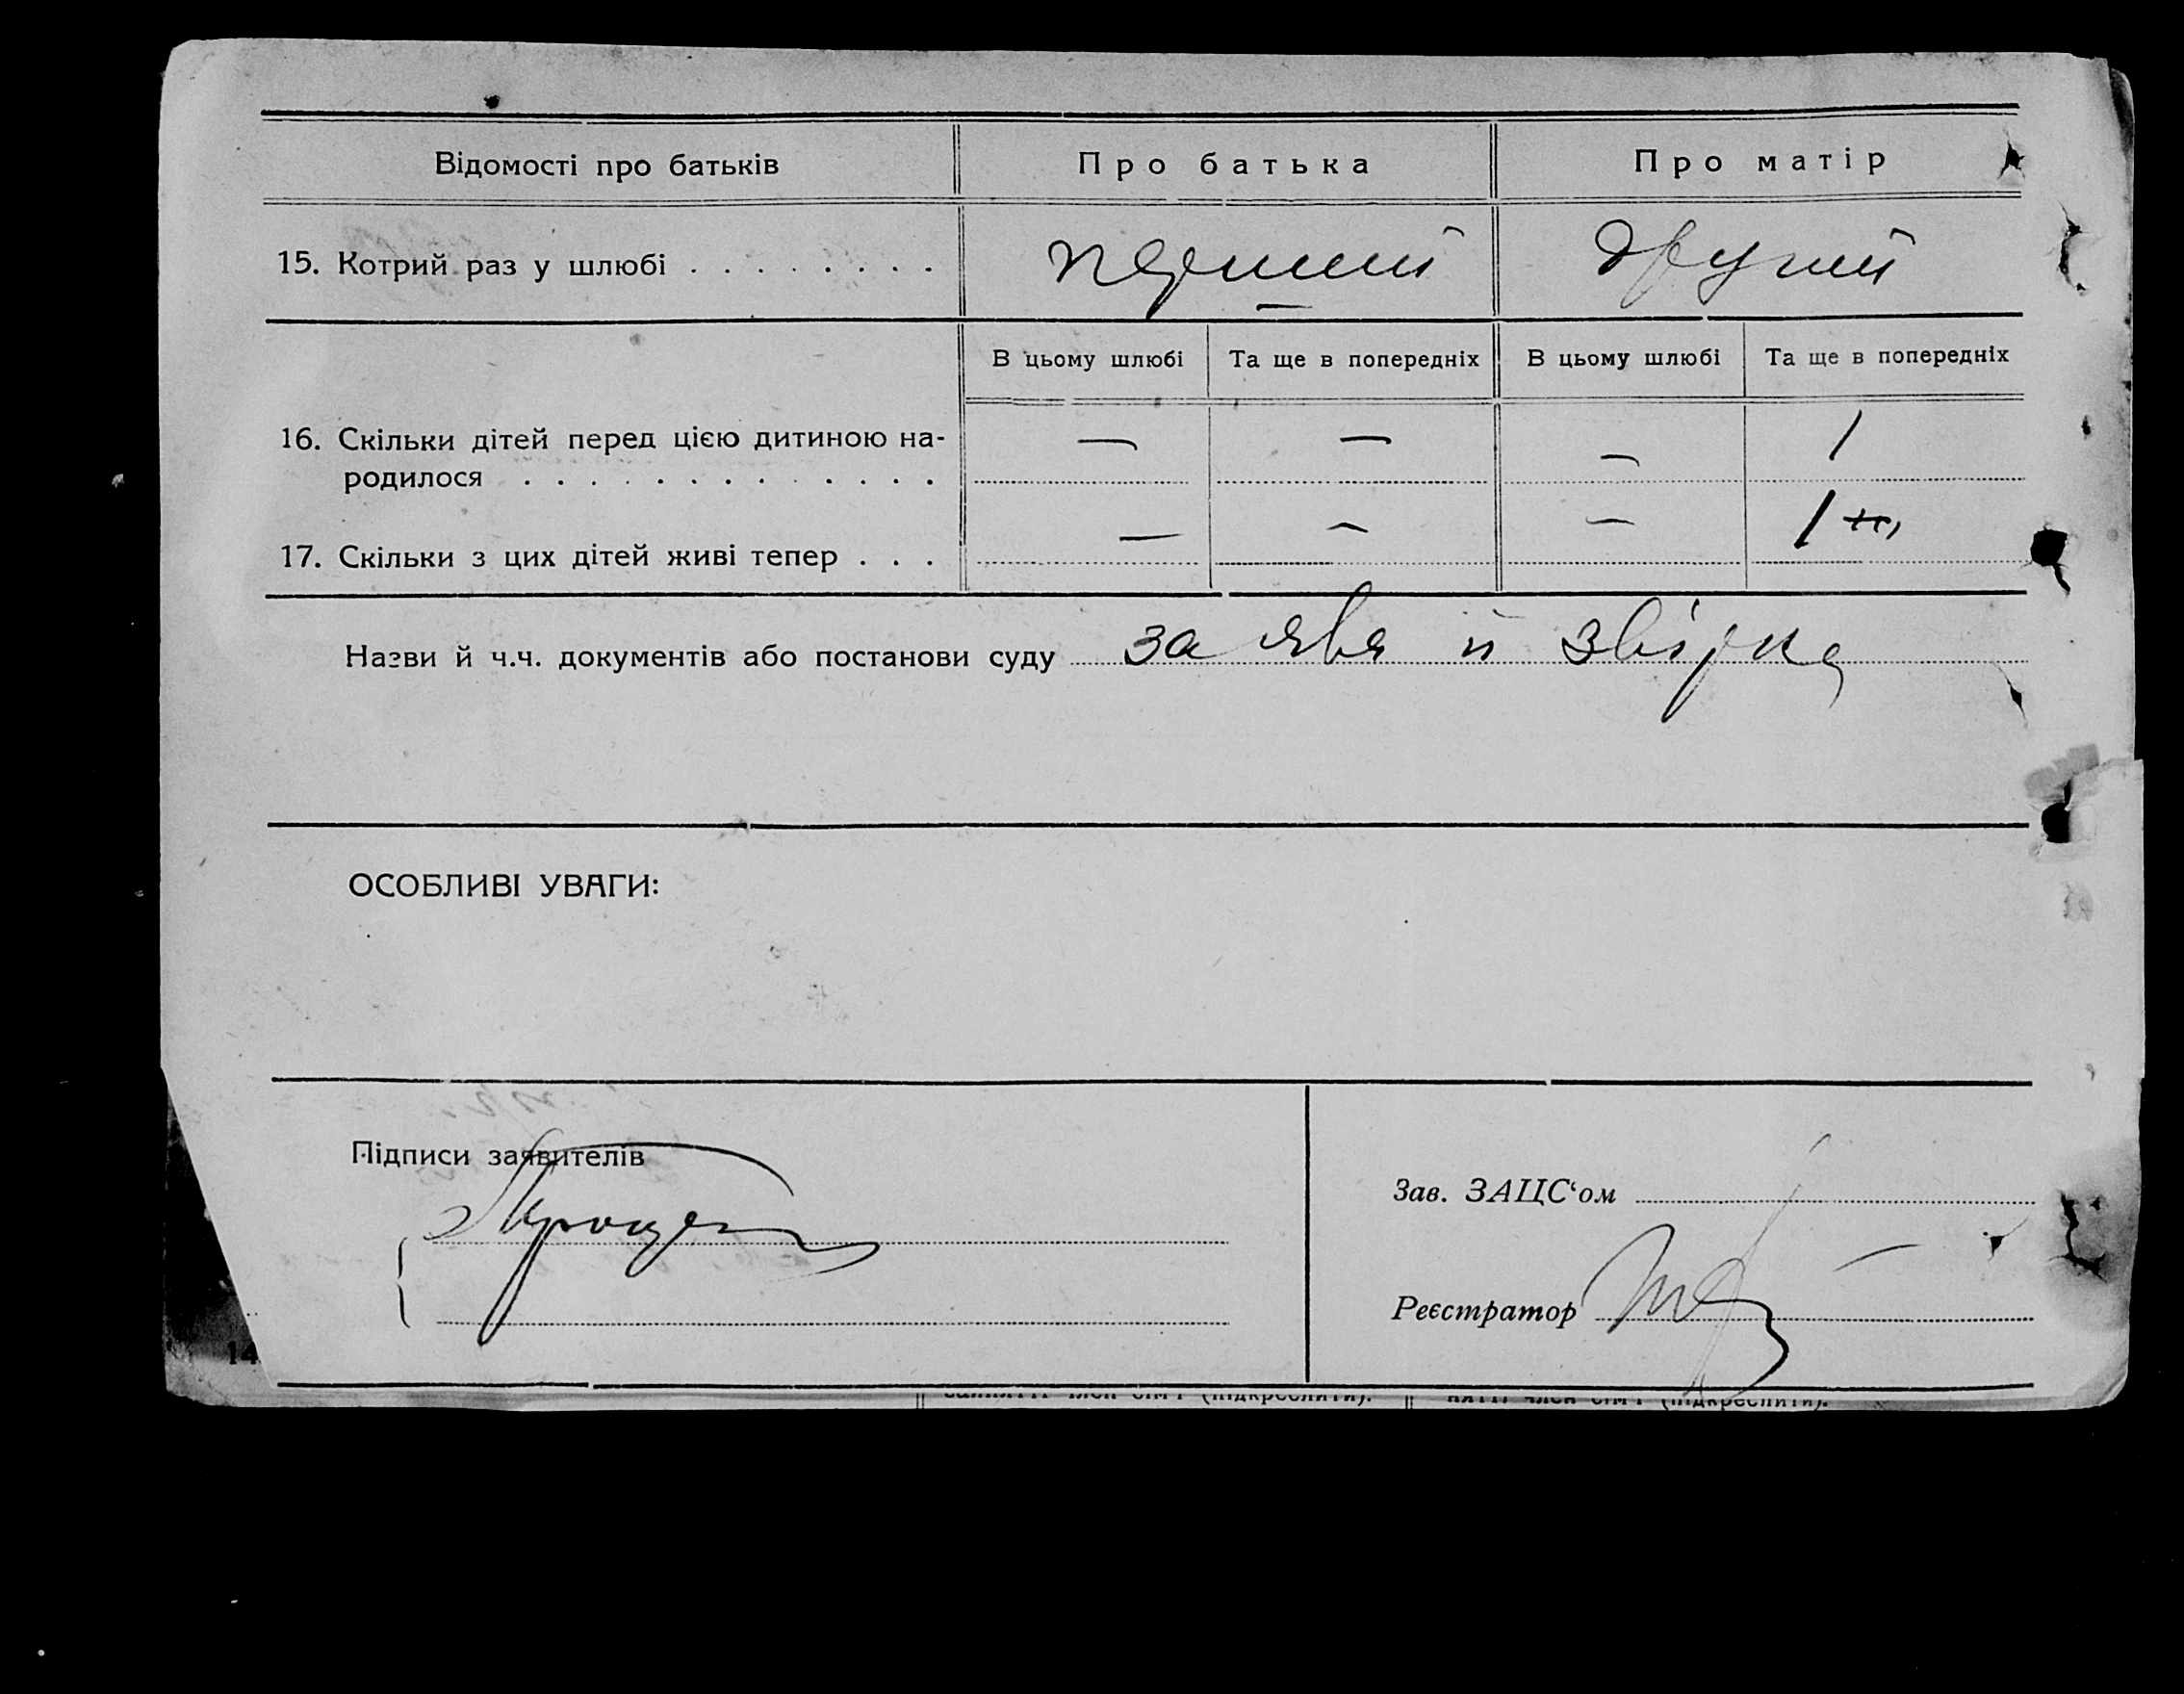 Відомості про батьків Про батька Про матір
15. Котрий раз у шлюбі . . . . . . . . перший другий
В цьому шлюбі Та ще в попередніх В цьому шлюбі Та ще в попередніх
16. Скільки дітей перед цією дитиною на- — — — 1
родилося . . . . . . . . . . . . .
17. Скільки з цих дітей живі тепер . . . — — — 1
Назви й ч.ч. документів або постанови суду заява й звірка
ОСОБЛИВІ УВАГИ:
Підписи заявителів
Зав. ЗАЦС‘ом
Реєстратор
14
член сім'ї (підкреслити). няття член сім'ї (підкреслити).